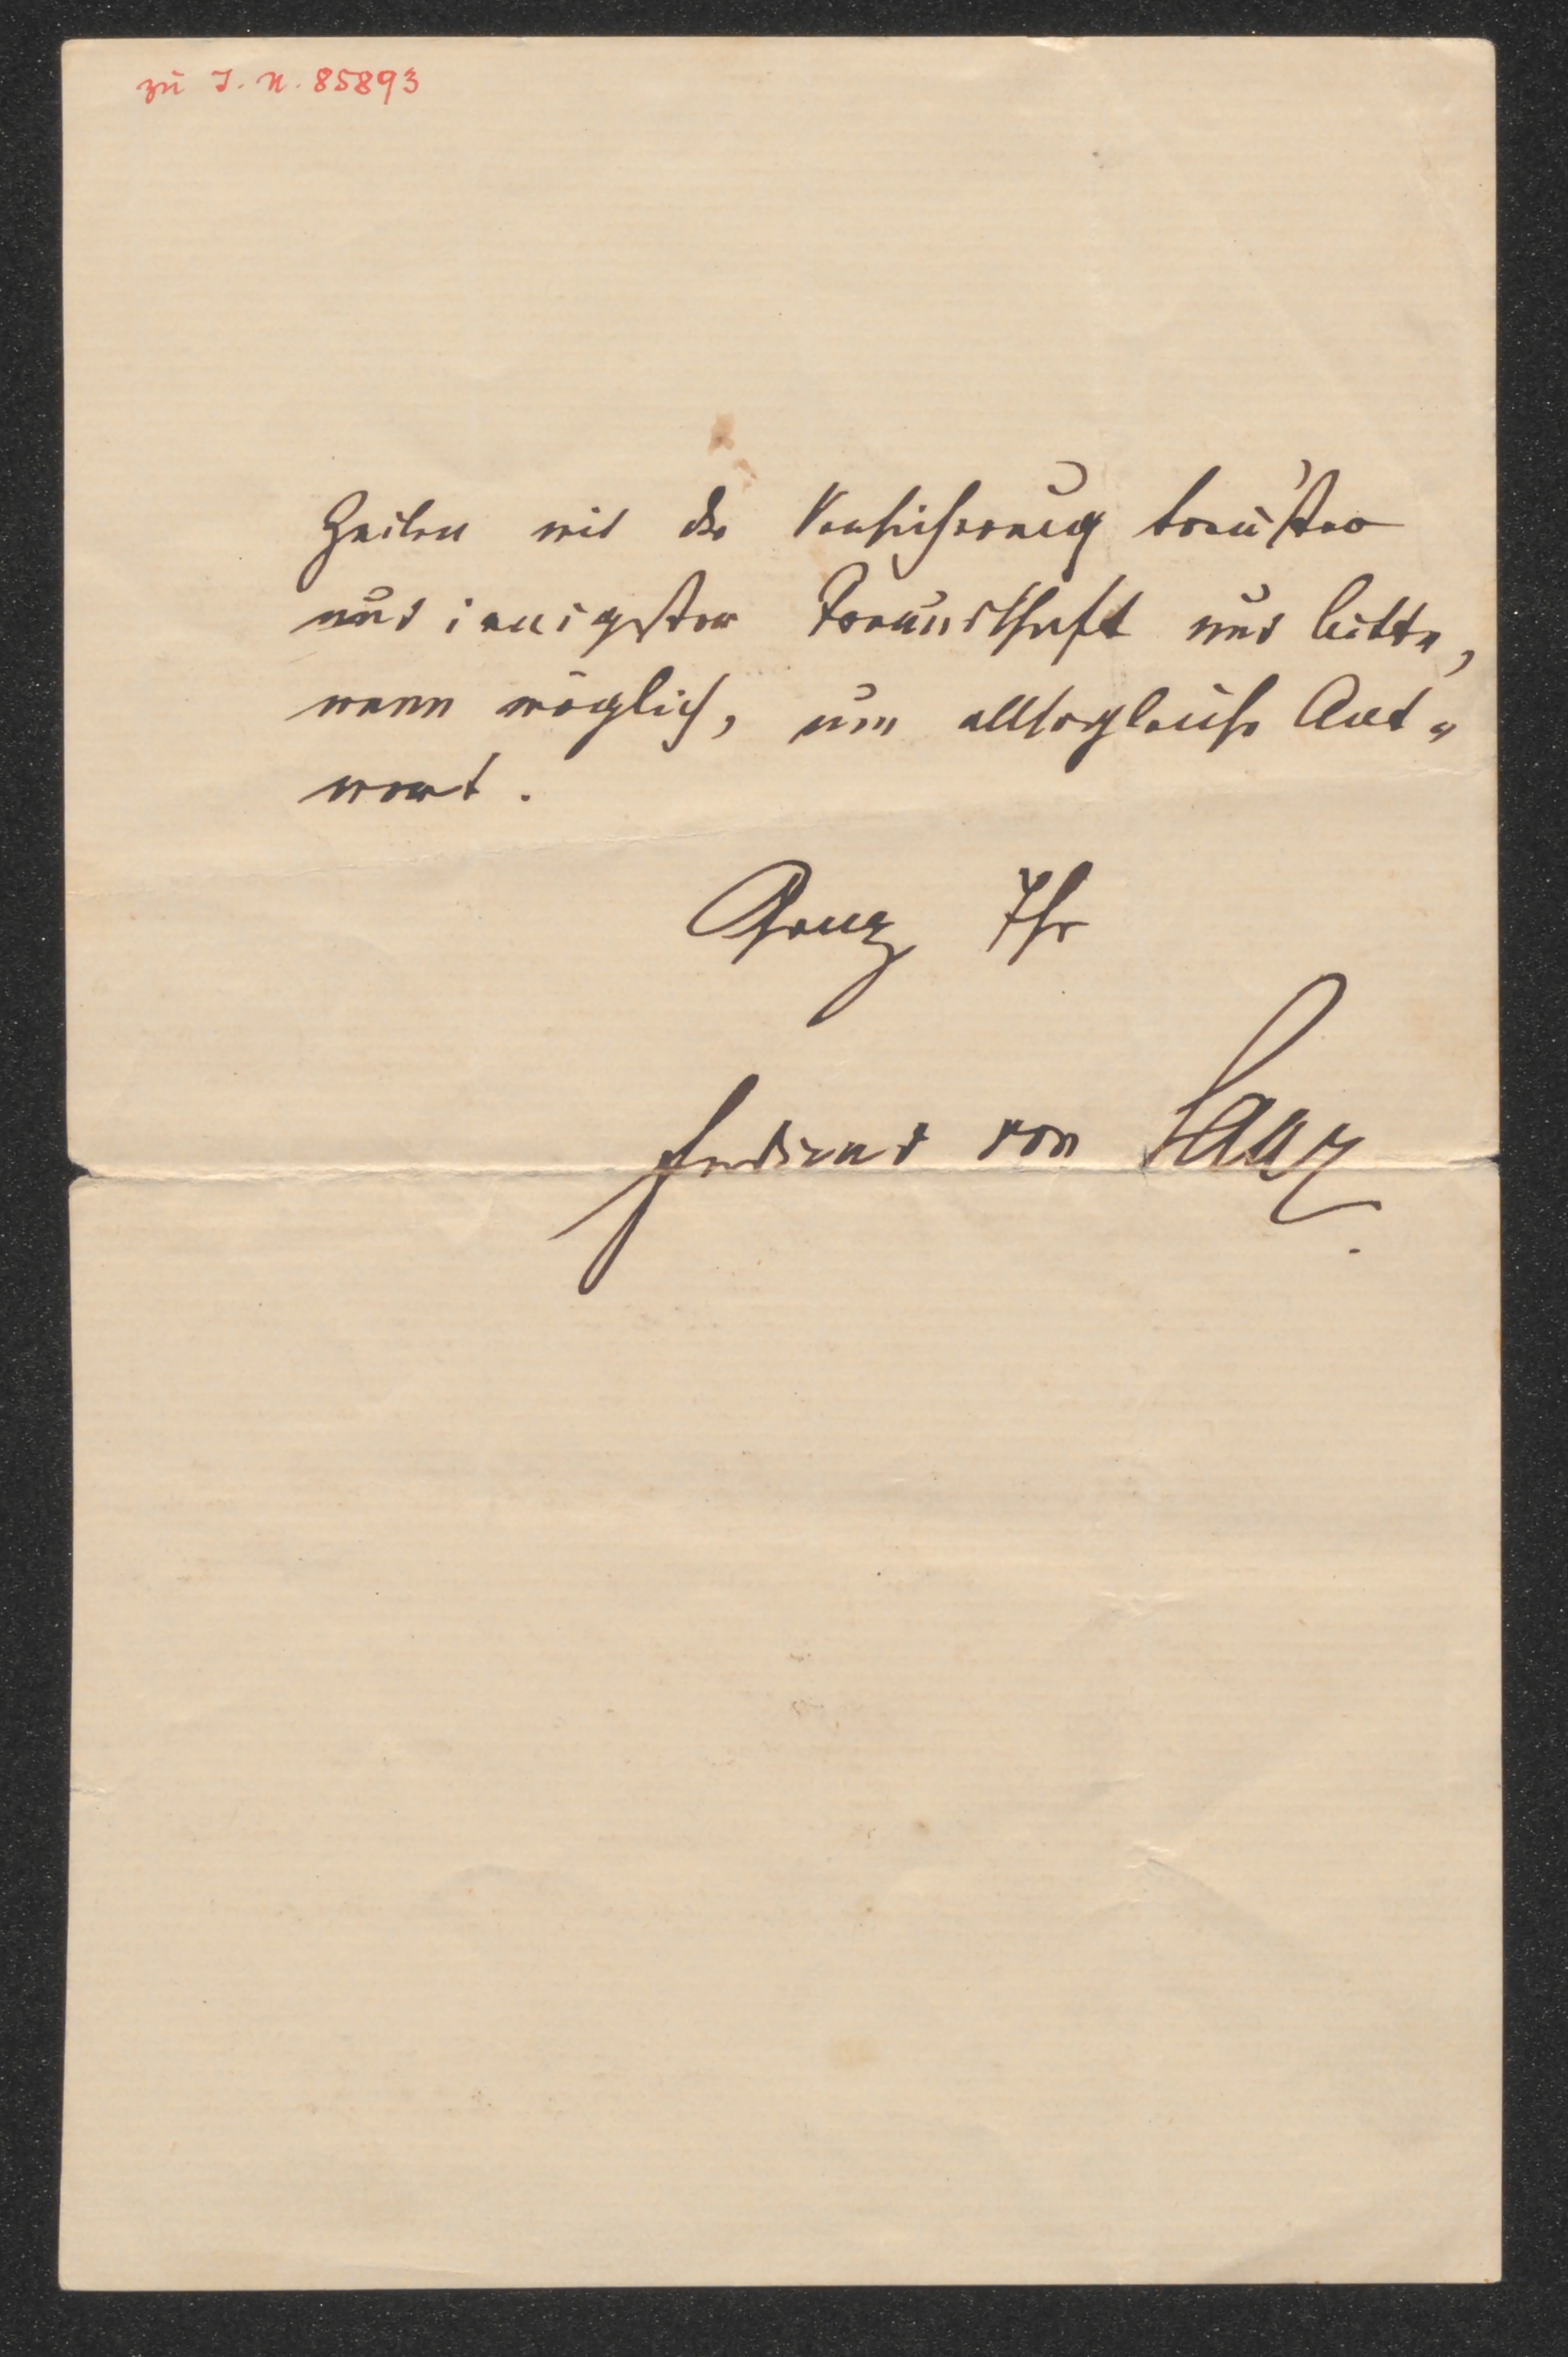 zu I. N. 85893
Zeilen mit der Versicherung treu'ster
und innigster Freundschaft und bitte,
wenn möglich, um allsogleiche Ant„
wort.
Ganz Ihr
Ferdinand von Saar.